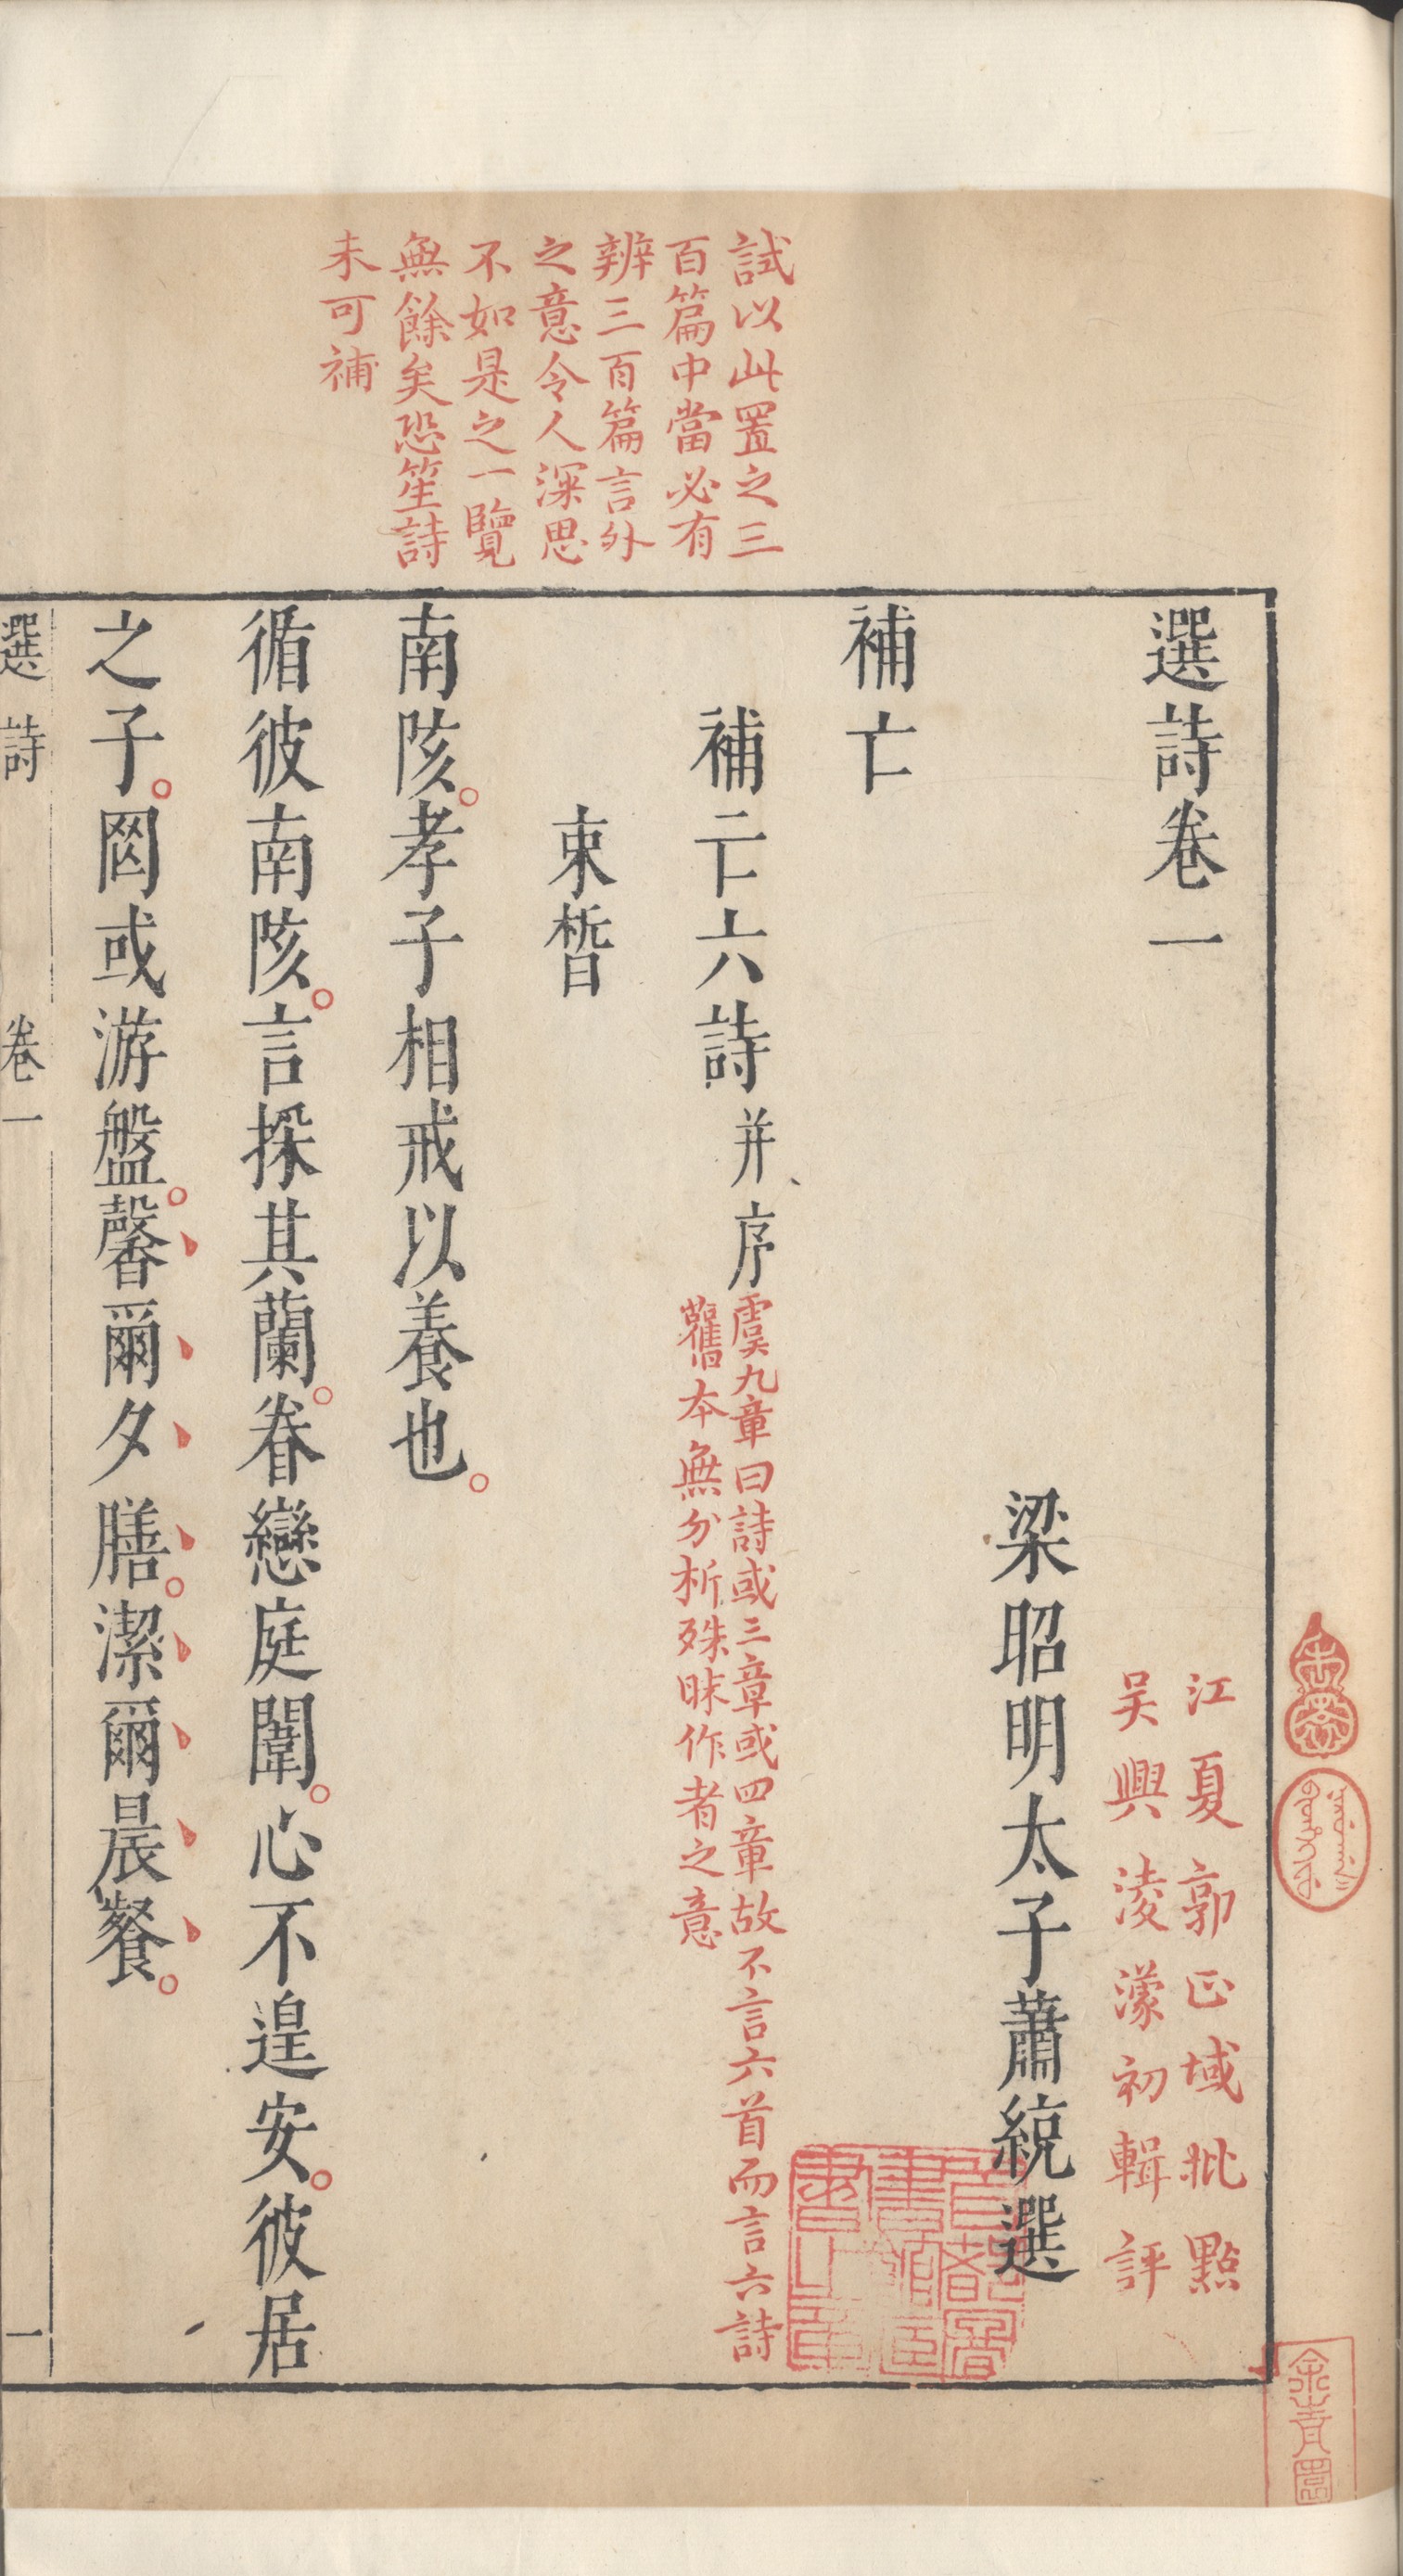 選詩卷一
江夏郭正域批點
吳興淩濛初輯評
梁昭明太子蕭統選
補亡
補亡六詩并序
虞九章曰詩或三章或四章故不言六首而言六詩
舊本無分析殊昧作者之意
束晳
南陔。孝子相戒以養也。
循彼南陔。言採其蘭。眷戀庭闈。心不遑安。彼居
之子。罔或游盤。馨爾夕膳。潔爾晨餐。
試以此置之三
百篇中當必有
辨三百篇言外
之意令人深思
不如是之一覽
無餘矣恐笙詩
未可補
選詩 卷一 一